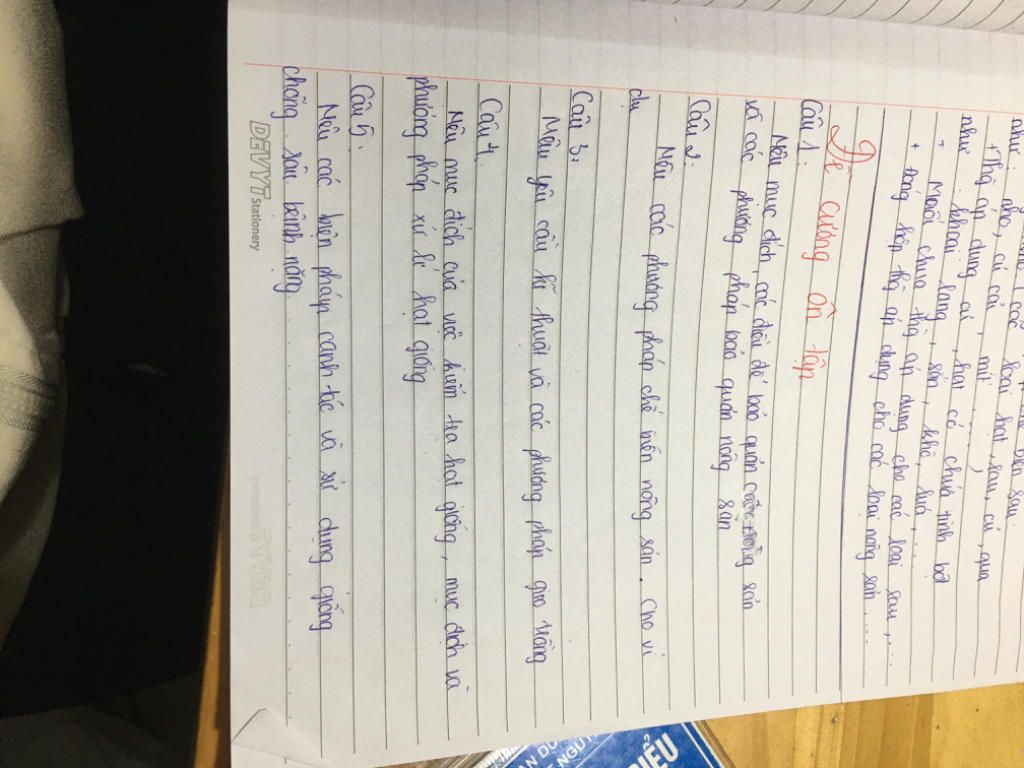 loại hạt, rau, củ, quả
như: nho, củ cải, mít ......,
+ Thọ áp dụng
như khoai lang, sắn, khô, lúa, ......
hạt có chứa tinh bột
- Muối chua thọ áp dụng cho các loại rau, ....
+ Đóng hộp thọ áp dụng cho các loại nông sản ....
Đề cương ôn tập
Câu 1:
Nêu mục đích, các điều đó bảo quản nông sản
và các phương pháp bảo quản nông sản
Câu 2:
Nêu các phương pháp chế biến nông sản. Cho ví
dụ
Câu 3:
Nêu yêu cầu kĩ thuật và các phương pháp gieo trồng
Câu 4.
Nêu mục đích của việc kiểm tra hạt giống, mục đích và
phương pháp xử lí hạt giống
Câu 5.
Nêu các biện pháp canh tác và sử dụng giống
chống sâu bệnh nặng.
DEVYT Stationery
ĐIỀU
NGUY